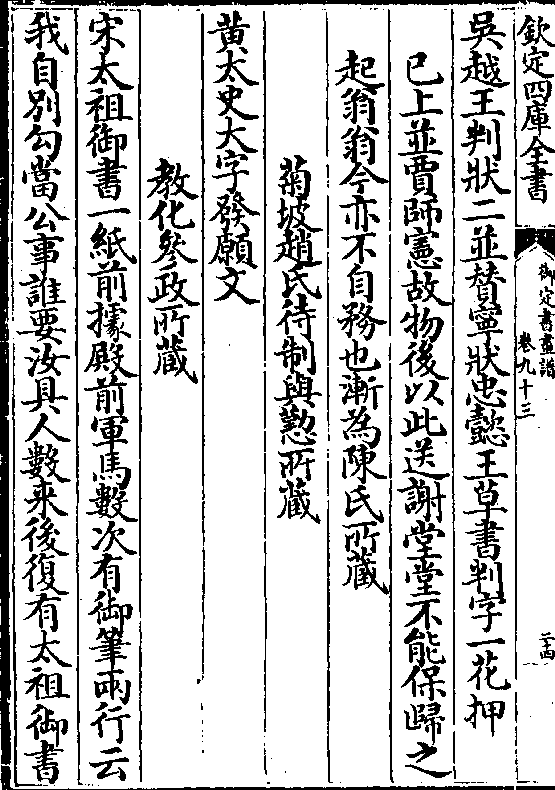 欽定四庫全書
御定書畫譜
卷九十三
二十四
吳越王判狀二並贊寧狀忠懿王草書判字一花押
已上並賈師憲故物後以此送謝堂堂不能保歸之
起翁翁今亦不自務也漸為陳氏所藏
菊坡趙氏待制與懃所藏
黃太史大字發願文
教化參政所藏
宋太祖御書一紙前據殿前軍馬數次有御筆兩行云
我自別勾當公事誰要汝具人數来後復有太祖御書